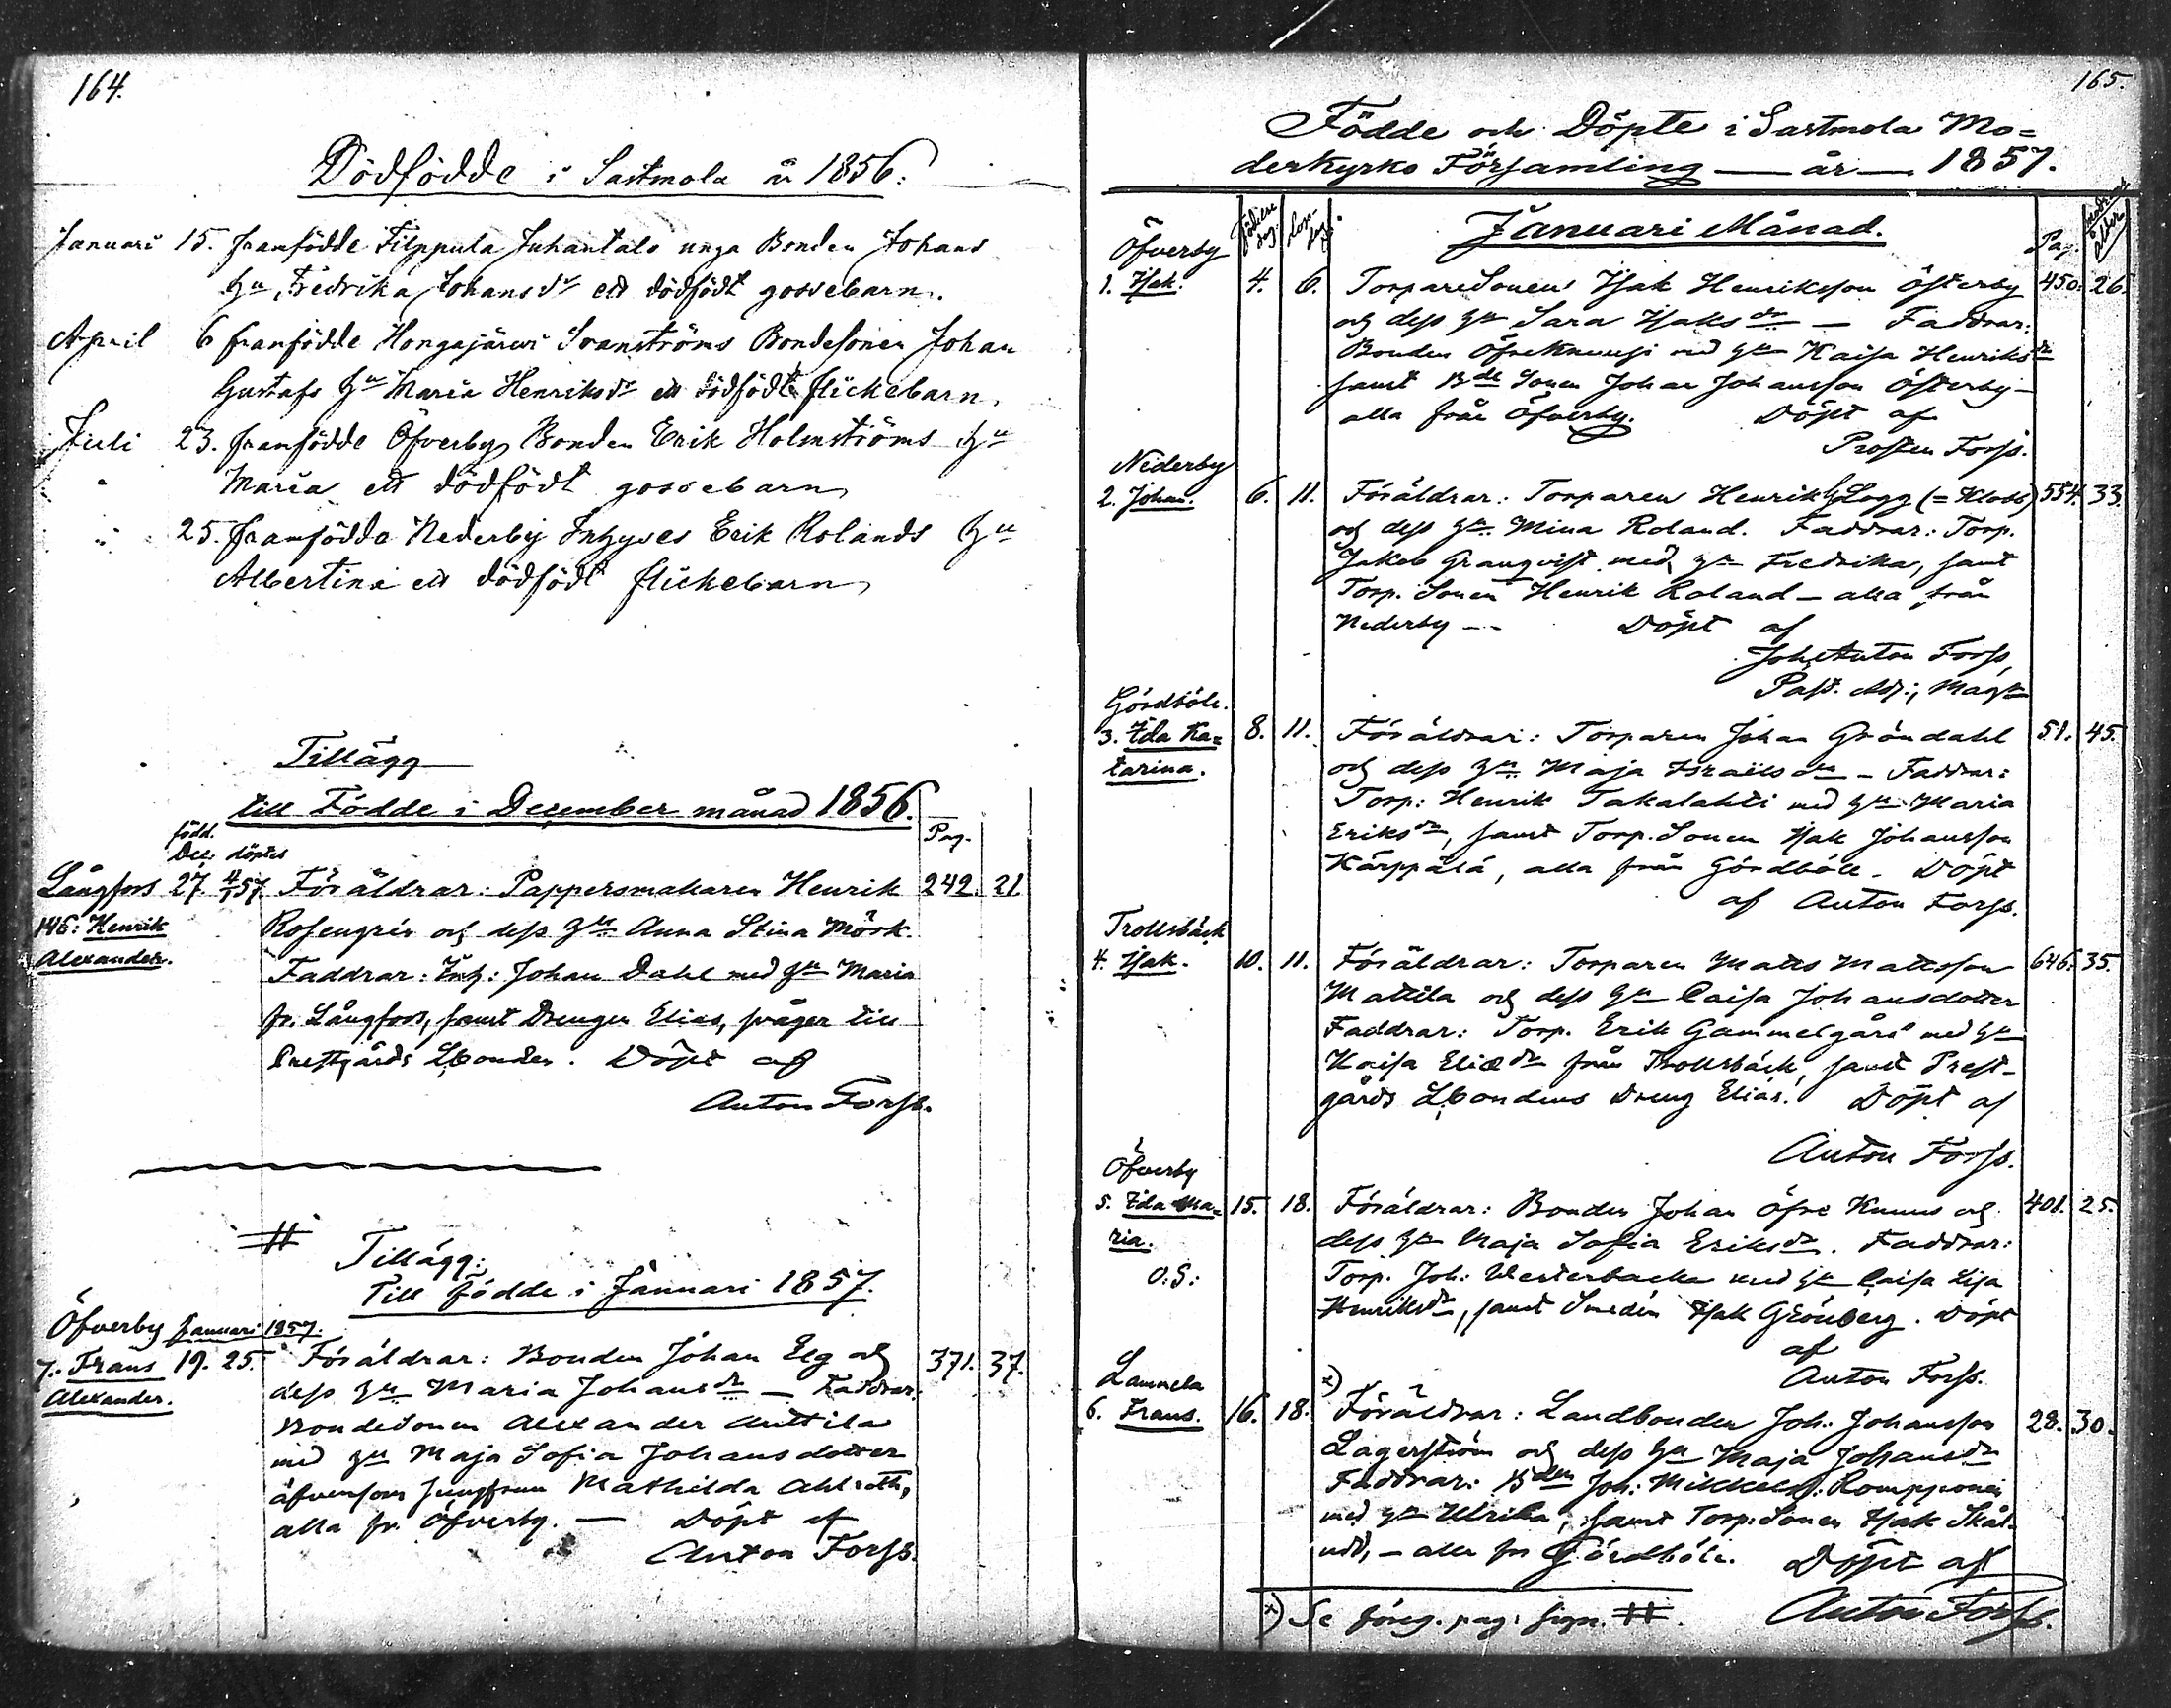 164.
Dödfödde i Sastmola år 1856.
Januari 15. framfödde Filppula Juhantalo unga Bonden Johans
hu Fredrika Johansdr ett dödfödt gossebarn.
April 6 framfödde Hongajärvi Svanströms Bondesonen Johan
Gustafs hu Maria Henriksdr ett dödfödt flickebarn.
Juli 23. framfödde Öfverby Bonden Erik Holmströms hu
" Maria ett dödfödt gossebarn
" 25. framfödde Nederby Inhyses Erik Rolands hu
Albertina ett dödfödt flickebarn
Tillägg
till Födde i December månad 1856.
född. Dec. döptes Pag.
Långfors 27. 4/1 57. Föräldrar: Pappersmakaren Henrik 242. 21.
146: Henrik Rosengrén och dess hu Anna Stina Mörk.
Alexander. Faddrar: Inh: Johan Dahl med hu Maria
fr. Långfors, samt Drengen Elias, måger till
Prestgårds Lbonden. Döpt af
Anton Forss.
#
Tillägg:
Till födde i Januari 1857.
Öfverby Januari 1857.
7. Frans 19. 25. Föräldrar: Bonden Johan Elg och 371. 37.
Alexander. dess hu Maria Johansdr — Faddrar:
Bondesonen Alexander Anttila
med hu Maja Sofia Johansdotter
äfvensom Jungfrun Mathilda Ahlroth,
alla fr. Öfverby. — Döpt af
Anton Forss.
165.
Födde och Döpte i Sastmola Mo=
derkyrko Församling — år — 1857.
Januari Månad. Pag.
Öfverby
1. Isak. 4. 6. TorpareSonen Isak Henriksson Österby 450. 26.
och dess hu Sara Isaksdr — Faddrar:
Bonden med hu Kaisa Henriksdr
samt Bde Sonen Johan Johansson Österby —
alla från Öfverby. Döpt af
Prosten Forss.
Nederby
2. Johan. 6. 11. Föräldrar: Torparen Henrik Logg (= Klobb) 554. 33.
och dess hu Mina Roland. Faddrar: Torp.
Jakob Granqvist med hu Fredrika, samt
Torp. Sonen Henrik Roland — alla från
Nederby — Döpt af
Joh Anton Forss,
Past. Adj., Magr
Gördböle.
3. Ida Ka= 8. 11. Föräldrar: Torparen Johan Gröndahl 51. 45.
tarina. och dess hu Maja Israelsdr — Faddrar:
Torp: Henrik Takalahti med hu Maria
Eriksdr, samt Torp. Sonen Isak Johansson
Kärppälä, alla från Gördböle. Döpt
af Anton Forss.
Trollsbäck
4. Isak. 10. 11. Föräldrar: Torparen Matts Mattsson 646. 35.
Mattila och dess hu Caisa Johansdotter
Faddrar: Torp. Erik Gammelgård med hu
Kaisa Eliædr från Trollsbäck, samt Prest-
gårds Lbondens Dreng Elias. Döpt af
Anton Forss.
Öfverby
5. Ida Ma= 15. 18. Föräldrar: Bonden Johan Öfre Knuus och 401. 25.
ria. dess hu Maja Sofia Eriksdr. Faddrar:
O.S: Torp. Joh: Westerbacka med hu Caisa Lisa
Henriksdr, samt Smeden Isak Grönberg. Döpt
af
Anton Forss.
Lammela x)
6. Frans. 16. 18. Föräldrar: Landbonden Joh: Johansson 28. 30.
Lagerström och dess hu Maja Johansdr
Faddrar: Bden Joh: Mikkelsf: Romppanen
med hu Ulrika, samt Torp: Sonen Isak Skål-
udd, — alla fr Gördböle. Döpt af
Anton Forss.
x) Se föreg. pag: sign. #.